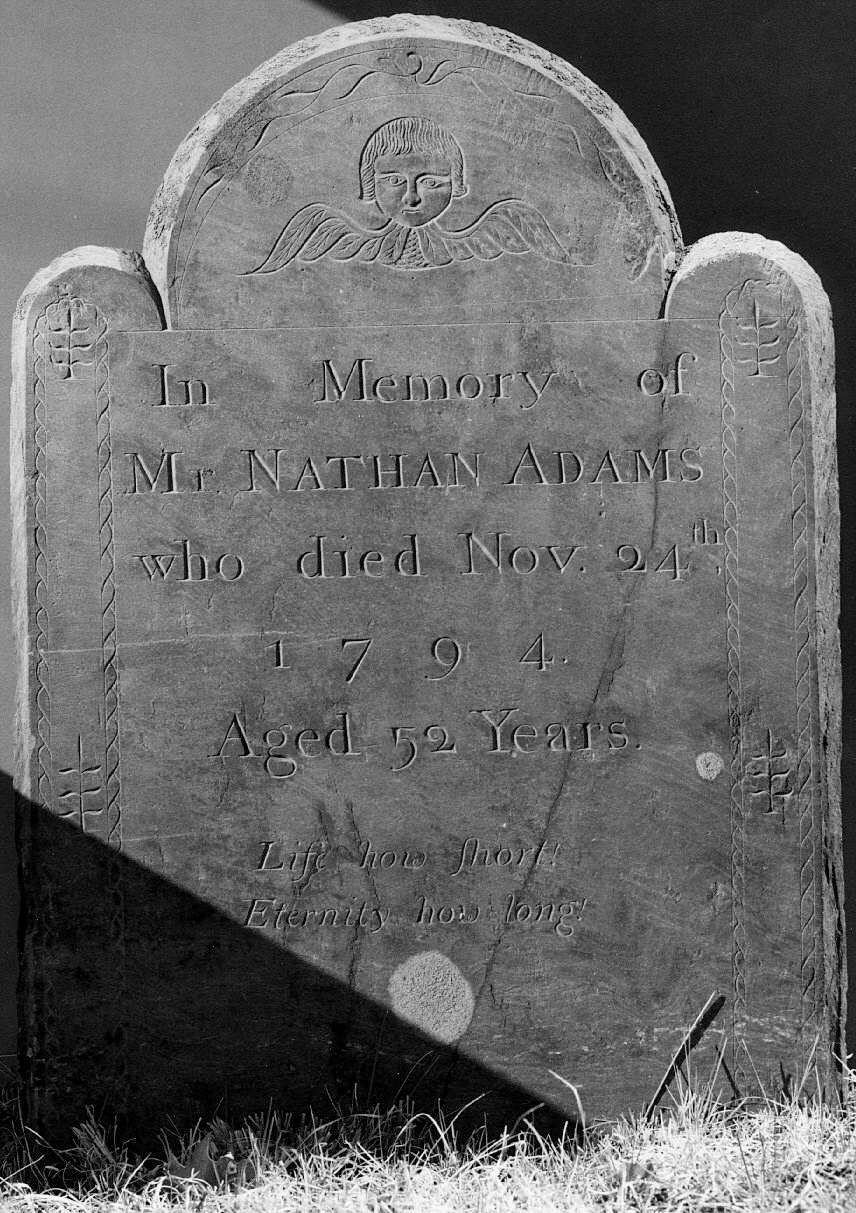 In Memory of
Mr. NATHAN ADAMS
who died Nov. 24th,
1794.
Aged 52 Years.
Life how ſhort!
Eternity how long!